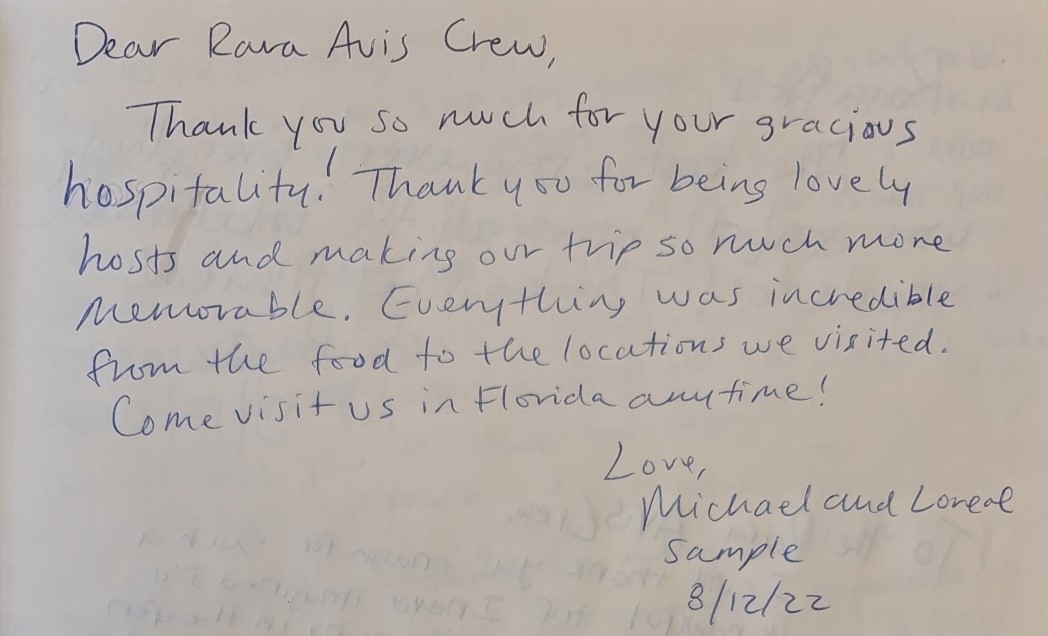 Dear Rara Avis Crew,
Thank you so much for your gracious
hospitality! Thank you for being lovely
hosts and making our trip so much more
memorable. Everything was incredible
from the food to the locations we visited.
Come visit us in Florida anytime!
Love,
Michael and Loreal
Sample
8/12/22